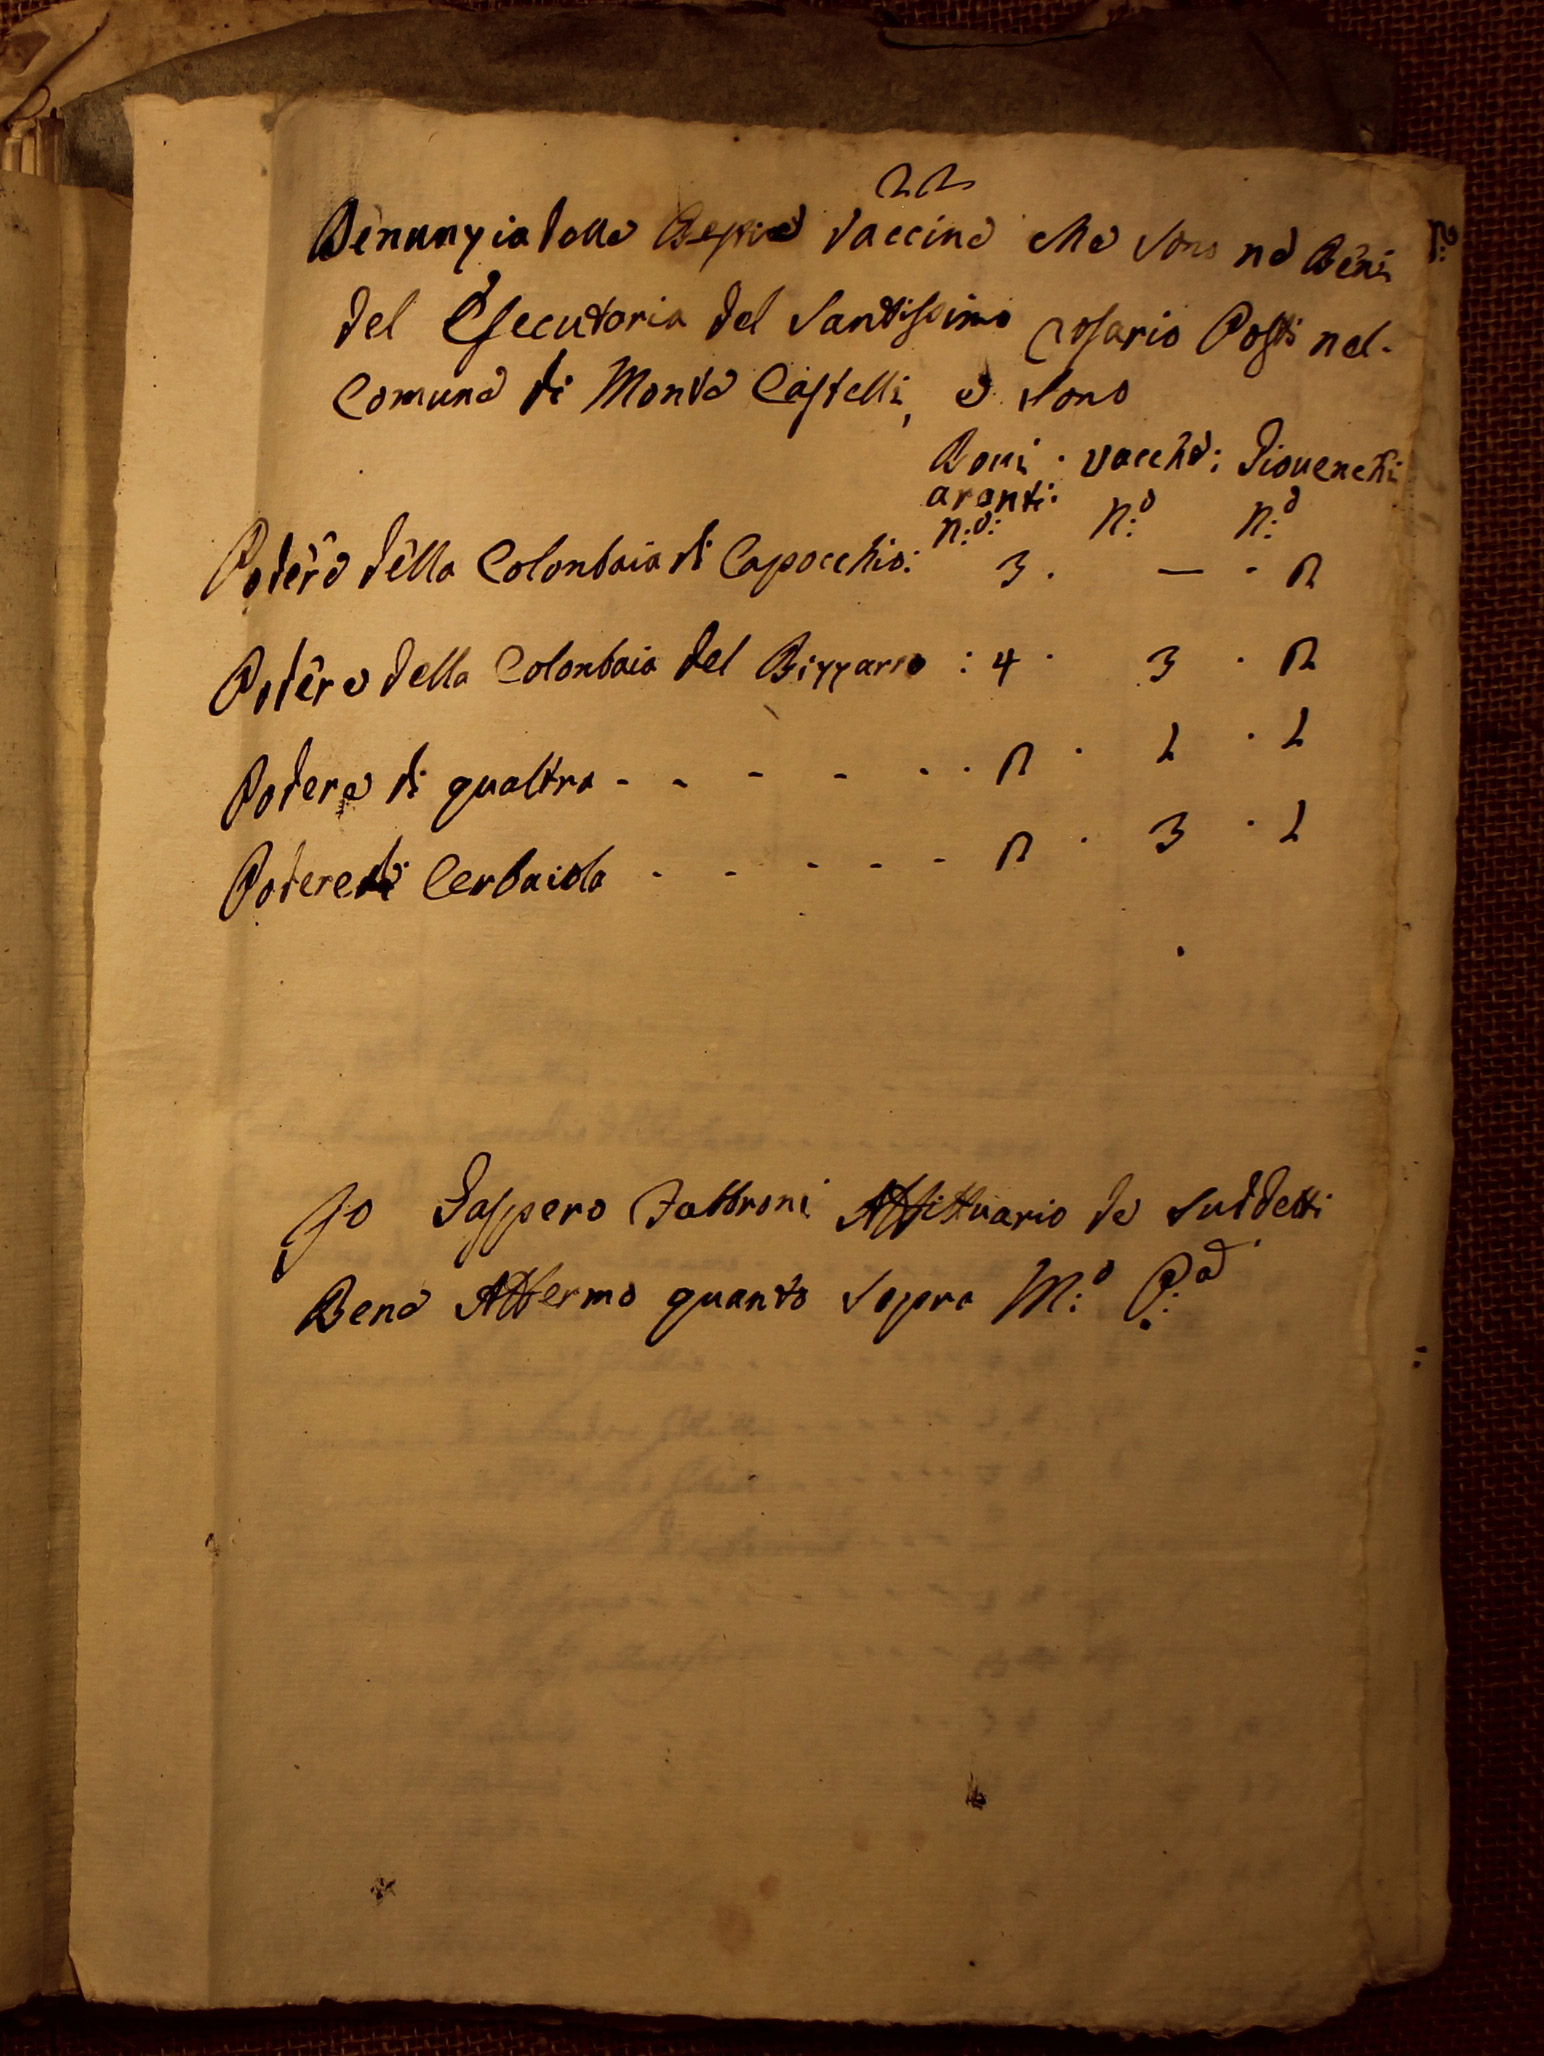 22
Denunzia delle Bestie Vaccine che sono ne Beni
del Esecutoria del Santissimo rosario Posti nel
Comune di Monte Castelli, e sono
Boui · vacche: Giouenchi
aranti:
n:o: n:o n:o
Podere della Colonbaia di Capocchio: 3 · — · 2
Podere della Colonbaia del Bizzarro : 4 · 3 · 2
Podere di gualtra - - - - - · 2 · 1 · 1
Podere di Cerbaiola - - - - - 2 · 3 · 1
Jo Gasspero Fabbroni Affittuario de Suddetti
Bene Affermo quanto Sopra M:o P:a